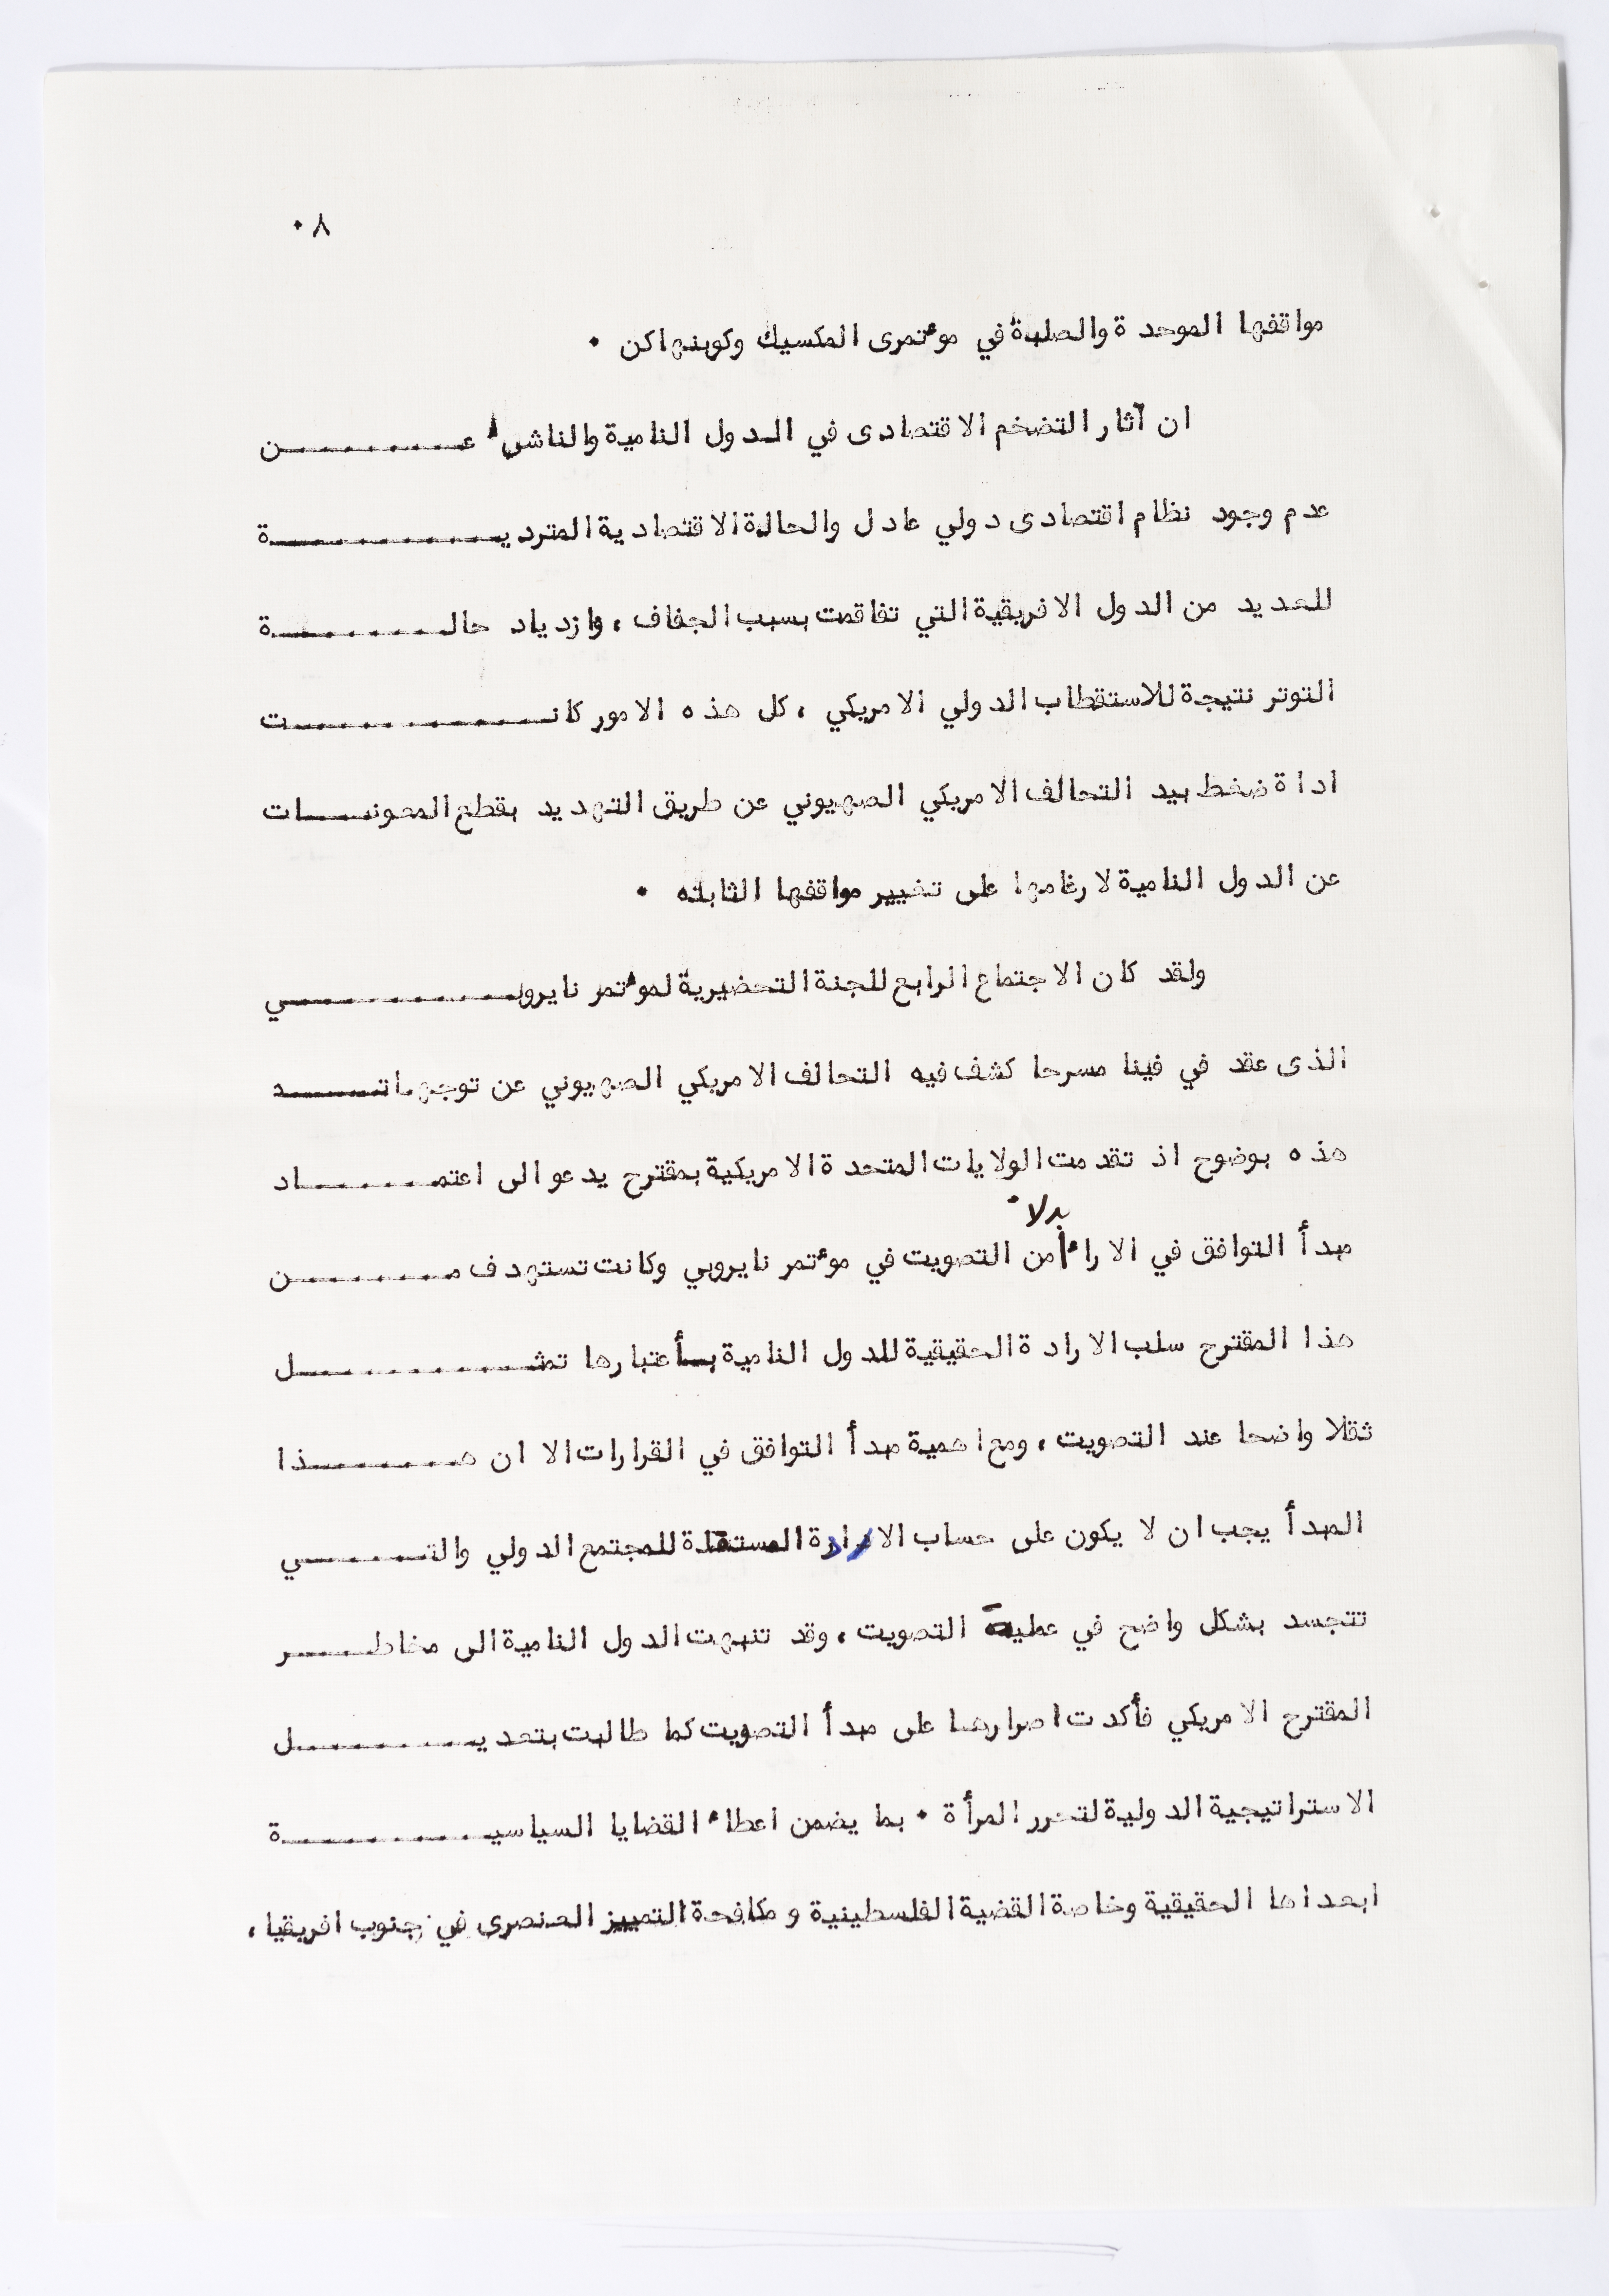 ٨٠
مواقفها الموحدة والصلبة في مؤتمرى المكسيك وكوبنهاكن ٠
ان آثار التضخم الاقتصادى في الدول النامية والناشىء عــــــــن
عدم وجود نظام اقتصادى دولي عادل والحالة الاقتصادية المترديــــــــة
للعديد من الدول الافريقية التي تفاقمت بسبب الجفاف ، وازدياد حالــــــــة
التوتر نتيجة للاستقطاب الدولي الامريكي ، كل هذه الامور كانــــــــت
اداة ضغط بيد التحالف الامريكي الصهيوني عن طريق التهديد بقطع المعونــــات
عن الدول النامية لارغامها على تغيير مواقفها الثابته ٠
ولقد كان الاجتماع الرابع للجنة التحضيرية لمؤتمر نايروبــــــــي
الذى عقد في فينا مسرحا كشف فيه التحالف الامريكي الصهيوني عن توجهاتــــــد
هذه بوضوح اذ تقدمت الولايات المتحدة الامريكية بمقترح يدعو الى اعتمــــــــاد
مبدأ التوافق في الاراء بدلا من التصويت في مؤتمر نايروبي وكانت تستهدف مــــــــن
هذا المقترح سلب الارادة الحقيقية للدول النامية بــأعتبارها تمثــــــــل
ثقلا واضحا عند التصويت ، ومع اهمية مبدأ التوافق في القرارات الا ان هــــــــذا
المبدأ يجب ان لا يكون على حساب الارادة المستقلة للمجتمع الدولي والتــــــــي
تتجسد بشكل واضح في عملية التصويت ، وقد تنبهت الدول النامية الى مخاطــــــر
المقترح الامريكي فأكدت اصرارهــا على مبدأ التصويت كما طالبت بتعديــــــــل
الاستراتيجية الدولية لتحرر المرأة ٠ بما يضمن اعطاء القضايا السياسيــــــــة
ابعداها الحقيقية وخاصة القضية الفلسطينية ومكافحة التمييز العنصرى في جنوب افريقيا ،